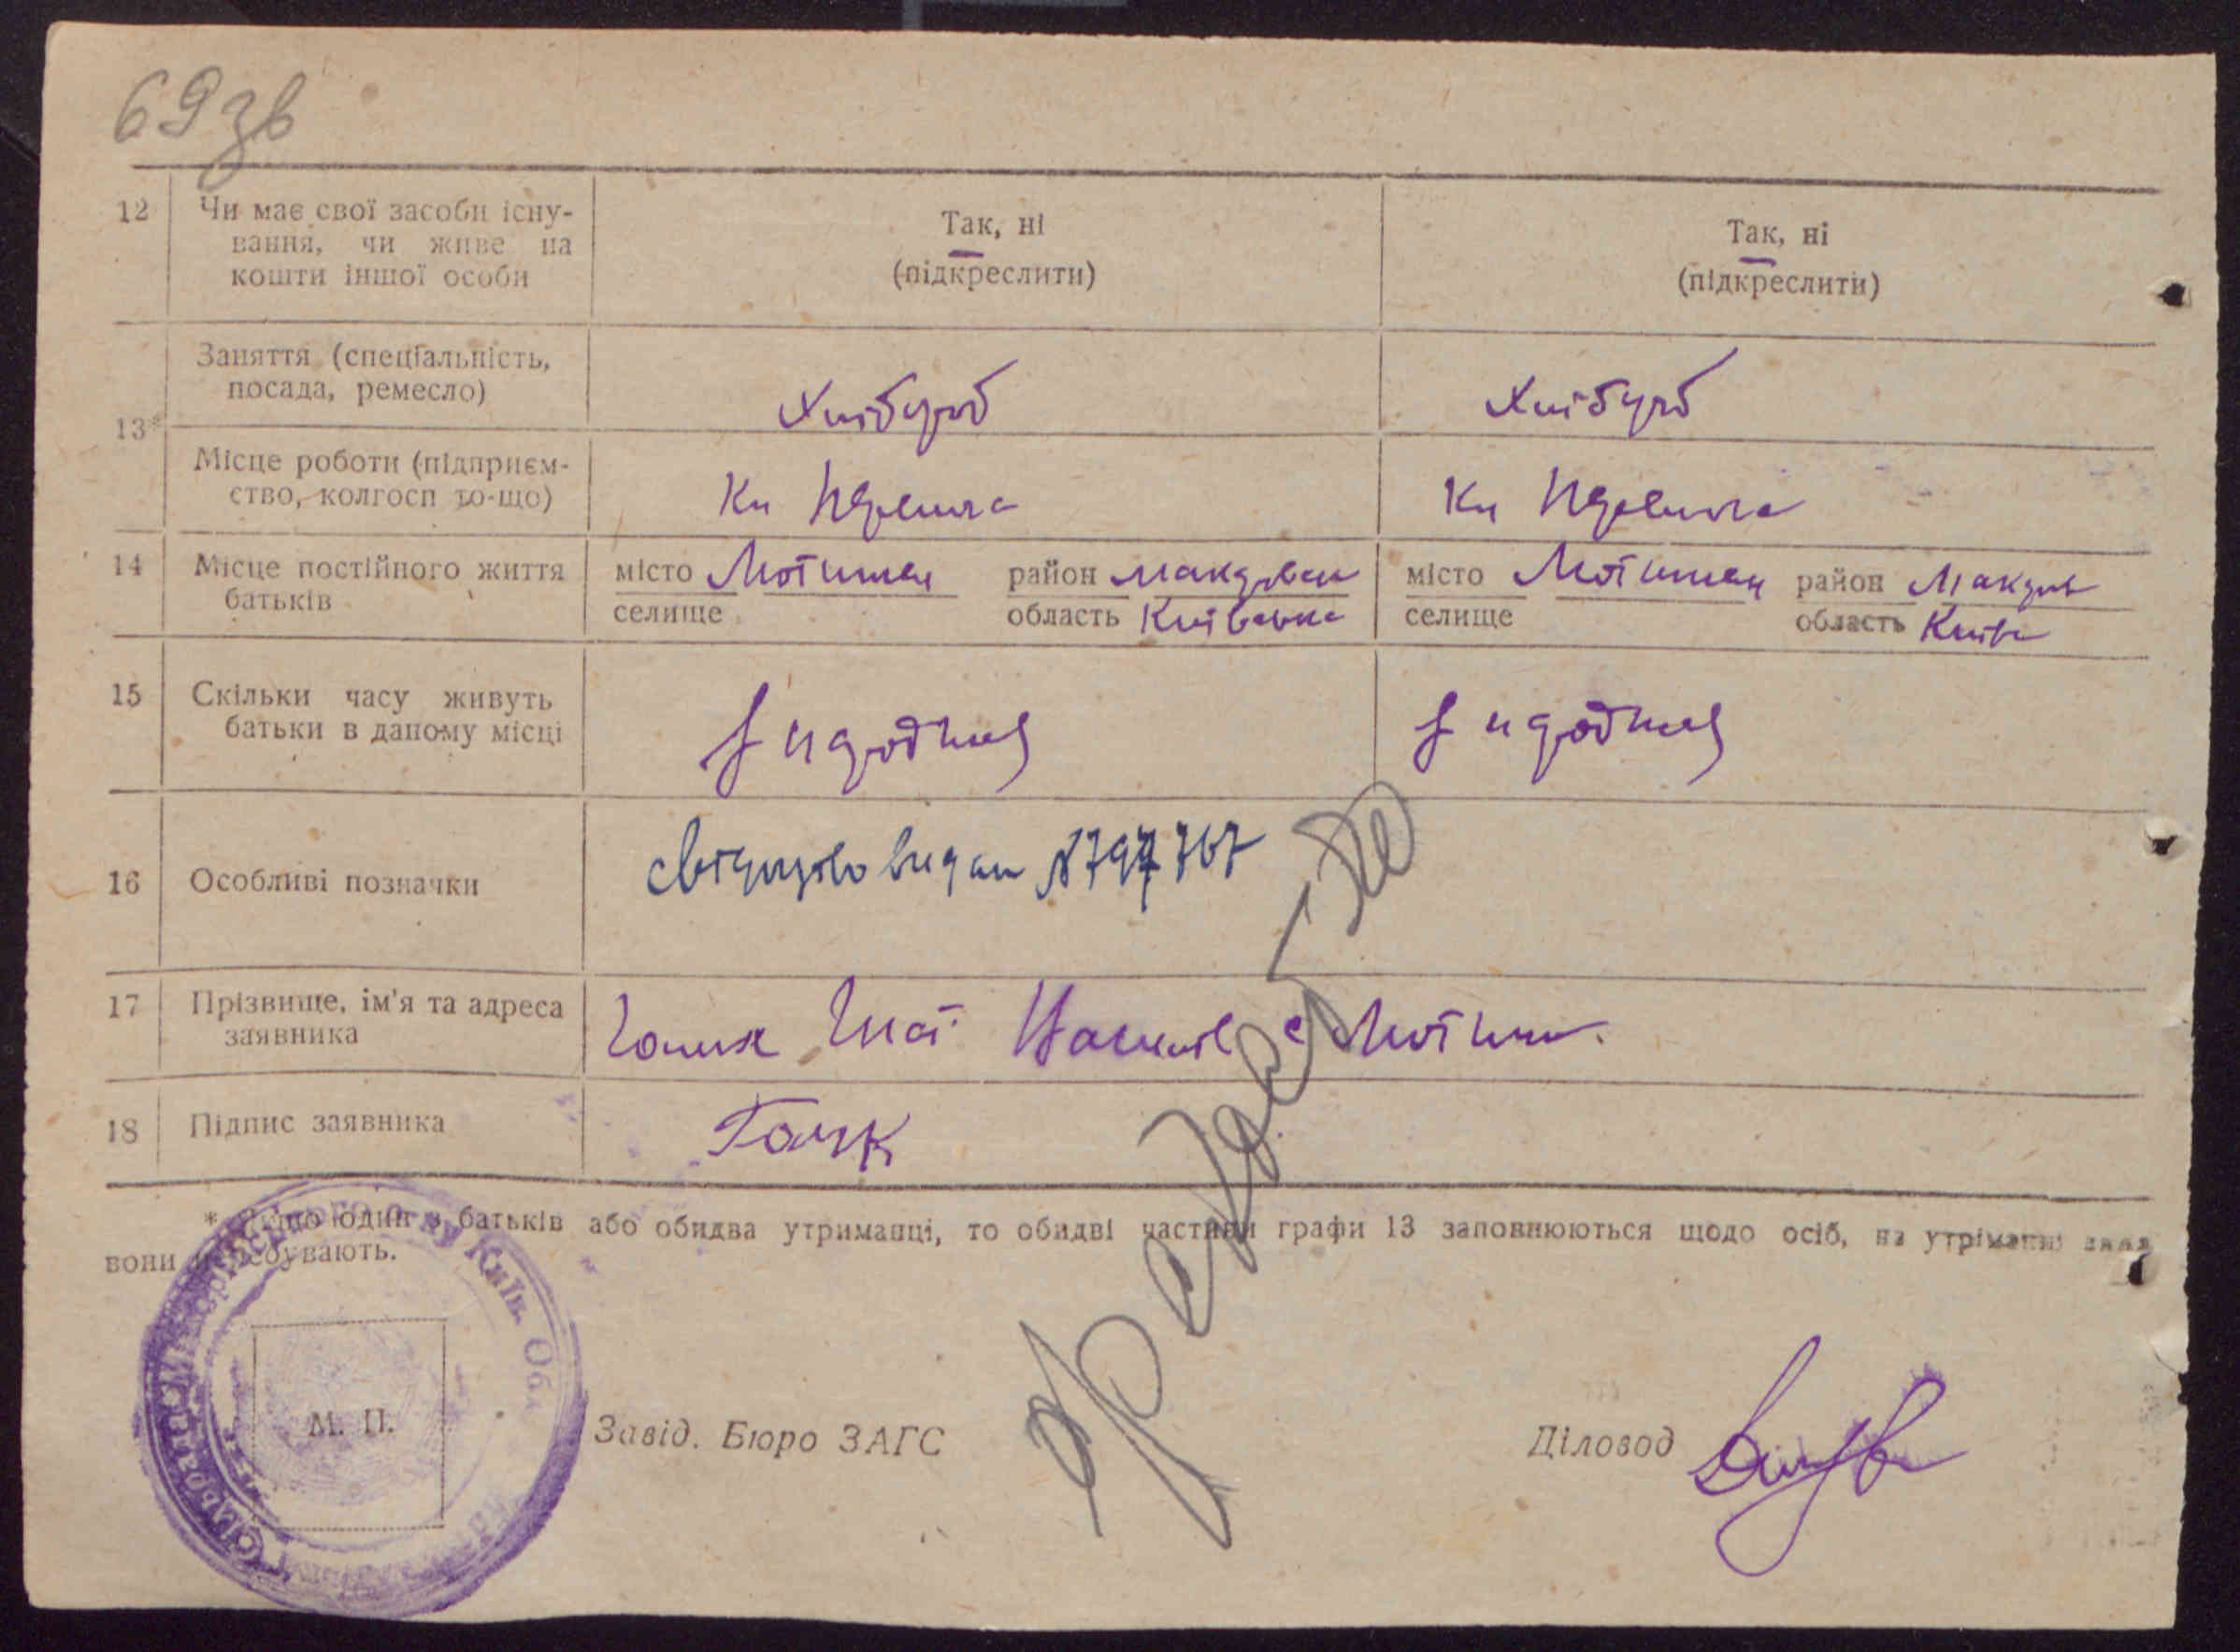 69 зв
12 Чи має свої засоби існу-
вання, чи живе на
кошти іншої особи
Так, ні
(підкреслити)
Так, ні
(підкреслити)
13*
Заняття (спеціальність,
посада, ремесло)
Хлібороб
Хлібороб
Місце роботи (підприєм-
ство, колгосп то-що)
14 Місце постійного життя
батьків
місто Мотижин район Макарівськ
селище область Київська
місто Мотижин район Макарів
селище область Київ
15 Скільки часу живуть
батьки в даному місці
з народження
з народження
16 Особливі позначки
свідоцтво видан №
17 Прізвище, ім'я та адреса
заявника
с Мотижин.
18 Підпис заявника
* Якщо один з батьків або обидва утриманці, то обидві частини графи 13 заповнюються щодо осіб, на утриманні яких
вони перебувають.
Київ. Обл.
М. П.
Завід. Бюро ЗАГС
Діловод